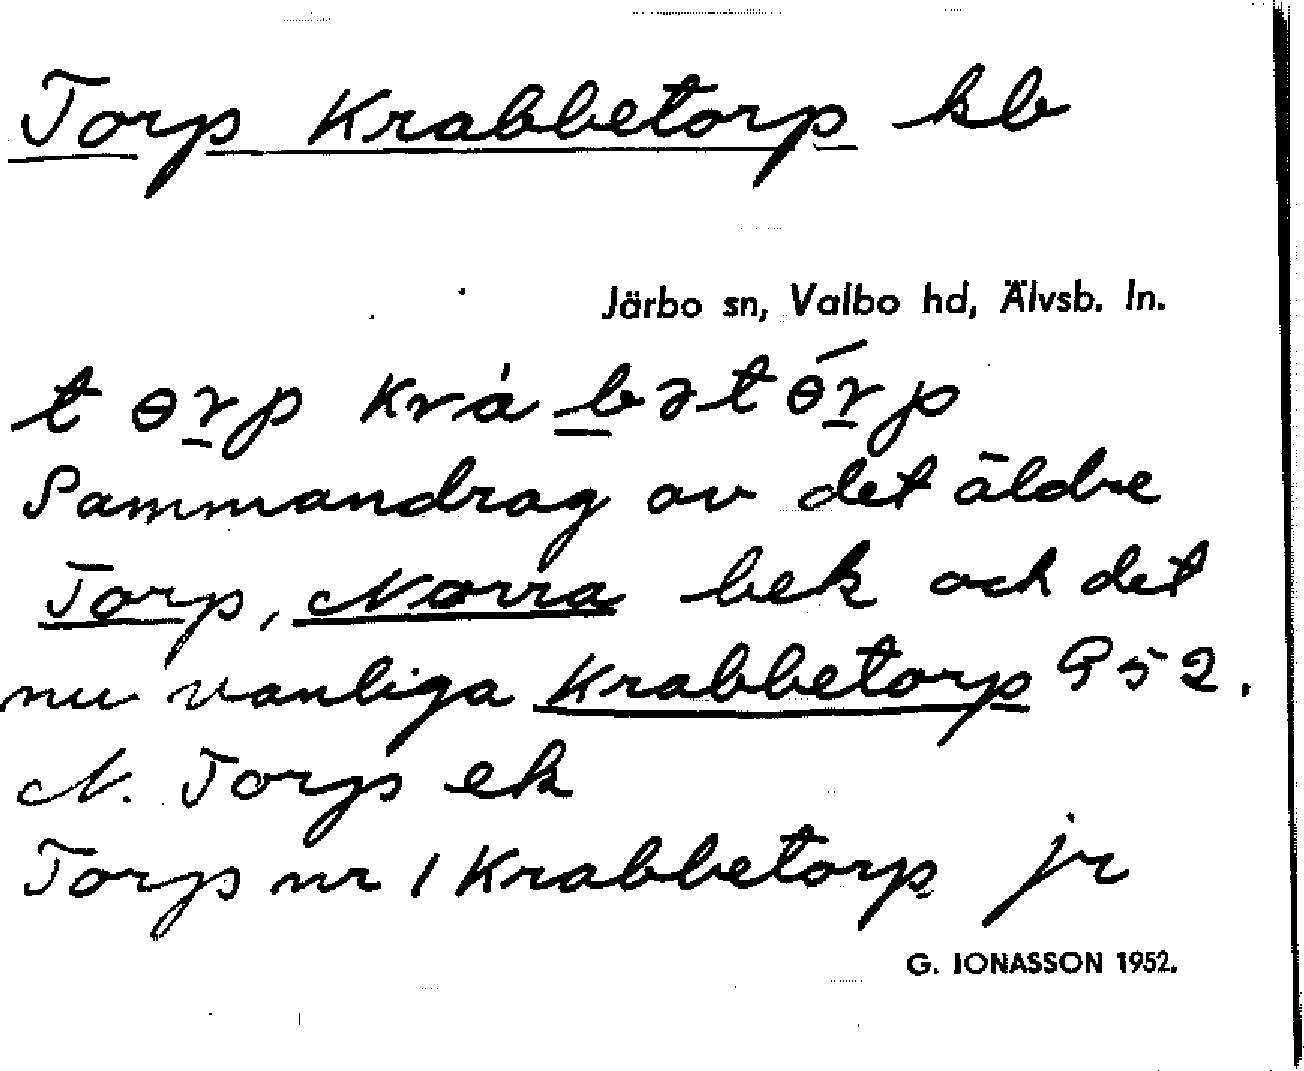 Torp Krabbetorp kb
Järbo sn, Valbo hd, Älvsb. ln.
tɵrp krábətɵ́rp
Sammandrag av det äldre
Torp, Norra bek och det
nu vanliga Krabbetorp 952.
N. Torp ek
Torp nr 1 Krabbetorp jr
G. IONASSON 1952.